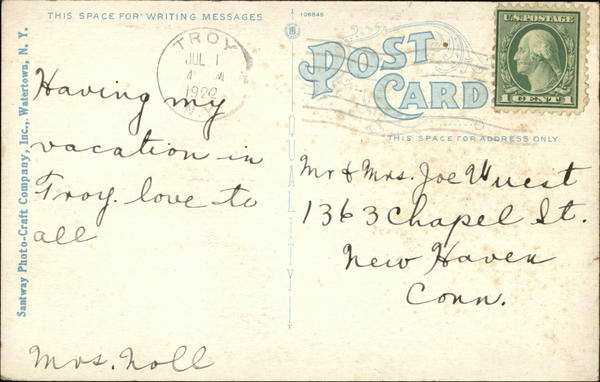 THIS SPACE FOR WRITING MESSAGES
106845
TROY
JUL 1
4 M
N.Y.
U.S. POSTAGE
1 CENT 1
POST
CARD
THIS SPACE FOR ADDRESS ONLY
Having my
vacation in
Troy. love to
all
Mrs. Noll
Mr & Mrs. Joe Wuest
1363 Chapel St.
New Haven
Conn.
QUALITY
Santway Photo-Craft Company, Inc., Watertown, N. Y.